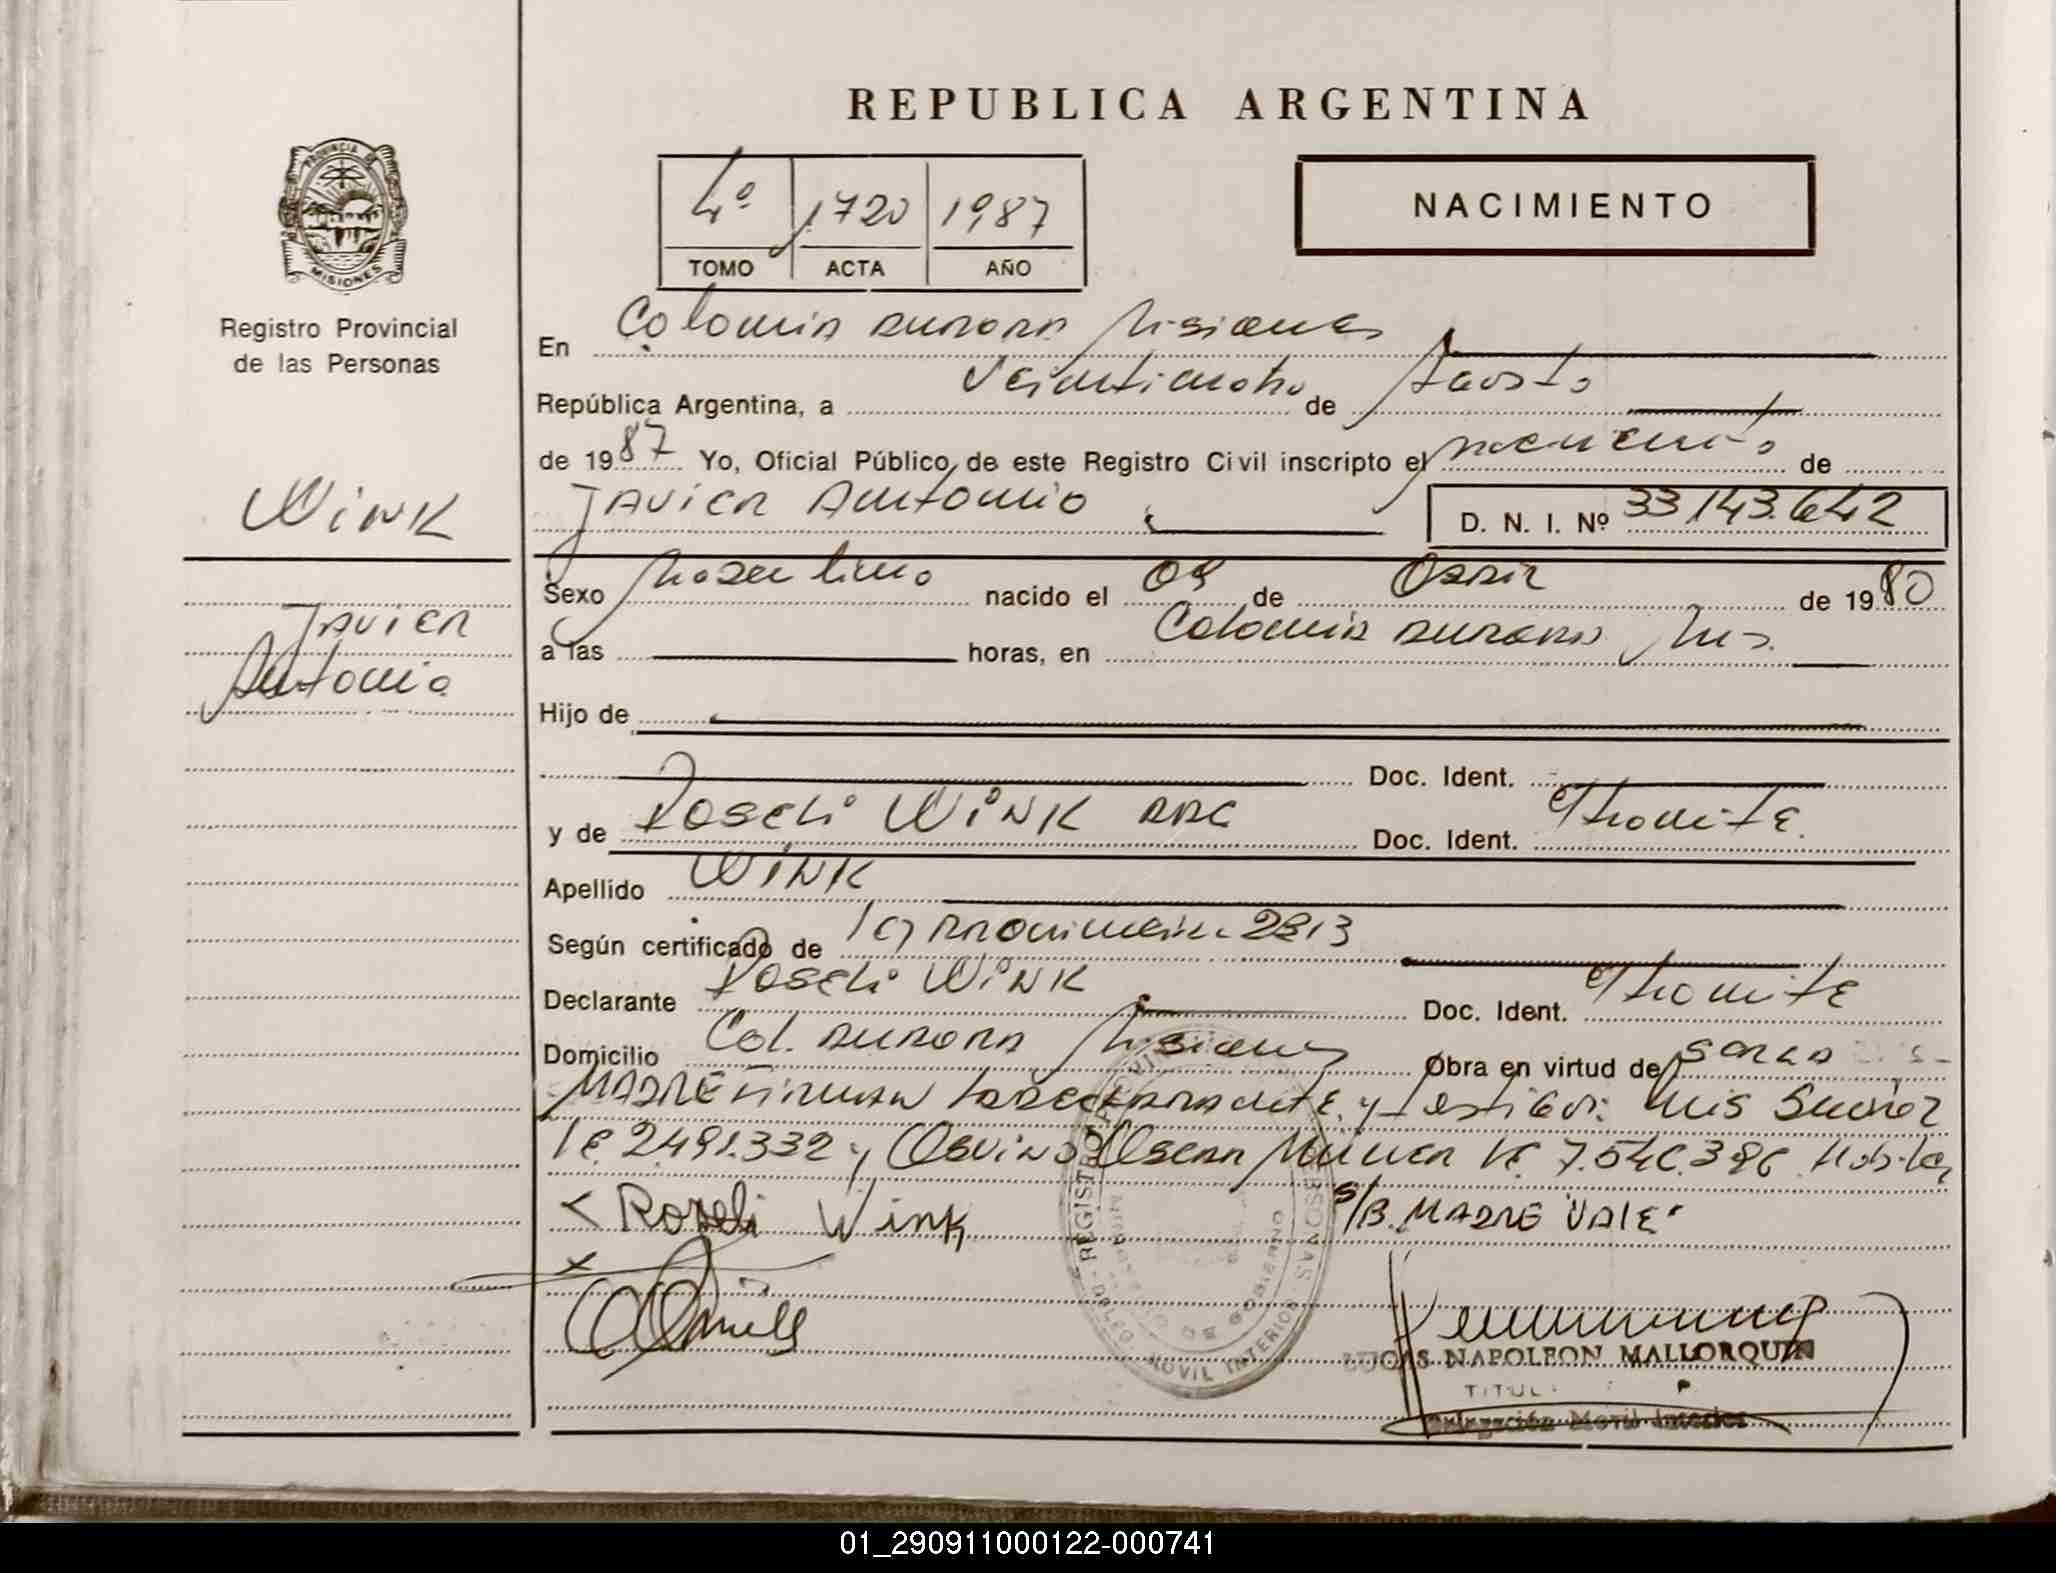 REPUBLICA ARGENTINA
4º 1720 1987
TOMO ACTA AÑO
NACIMIENTO
PROVINCIA DE MISIONES
Registro Provincial
de las Personas
WINK
Javier
Antonio
En Colonia Aurora Misiones
República Argentina, a Veintiocho de Agosto
de 1987 Yo, Oficial Público, de este Registro Civil inscripto el nacimiento de
Javier Antonio D. N. I. Nº 33.143.642
Sexo Masculino nacido el 09 de de 1980
a las horas, en Colonia Aurora Mns.
Hijo de
Doc. Ident.
y de Roseli WINK Doc. Ident.
Apellido WINK
Según certificado de 2813
Declarante Roseli WINK Doc. Ident.
Domicilio Col. Aurora Misiones Obra en virtud de
MADRE Firman la declarante y testigos: Luis
2.491.332 y Osvino Oscar Muller
< Roseli Wink S/B. MADRE VALE"
REGISTRO PROVINCIAL DE LAS PERSONAS
MINISTERIO DE GOBIERNO
MOVIL INTERIOR
LUCAS NAPOLEON MALLORQUIN
TITUL
Delegación Movil Interior
01_290911000122-000741